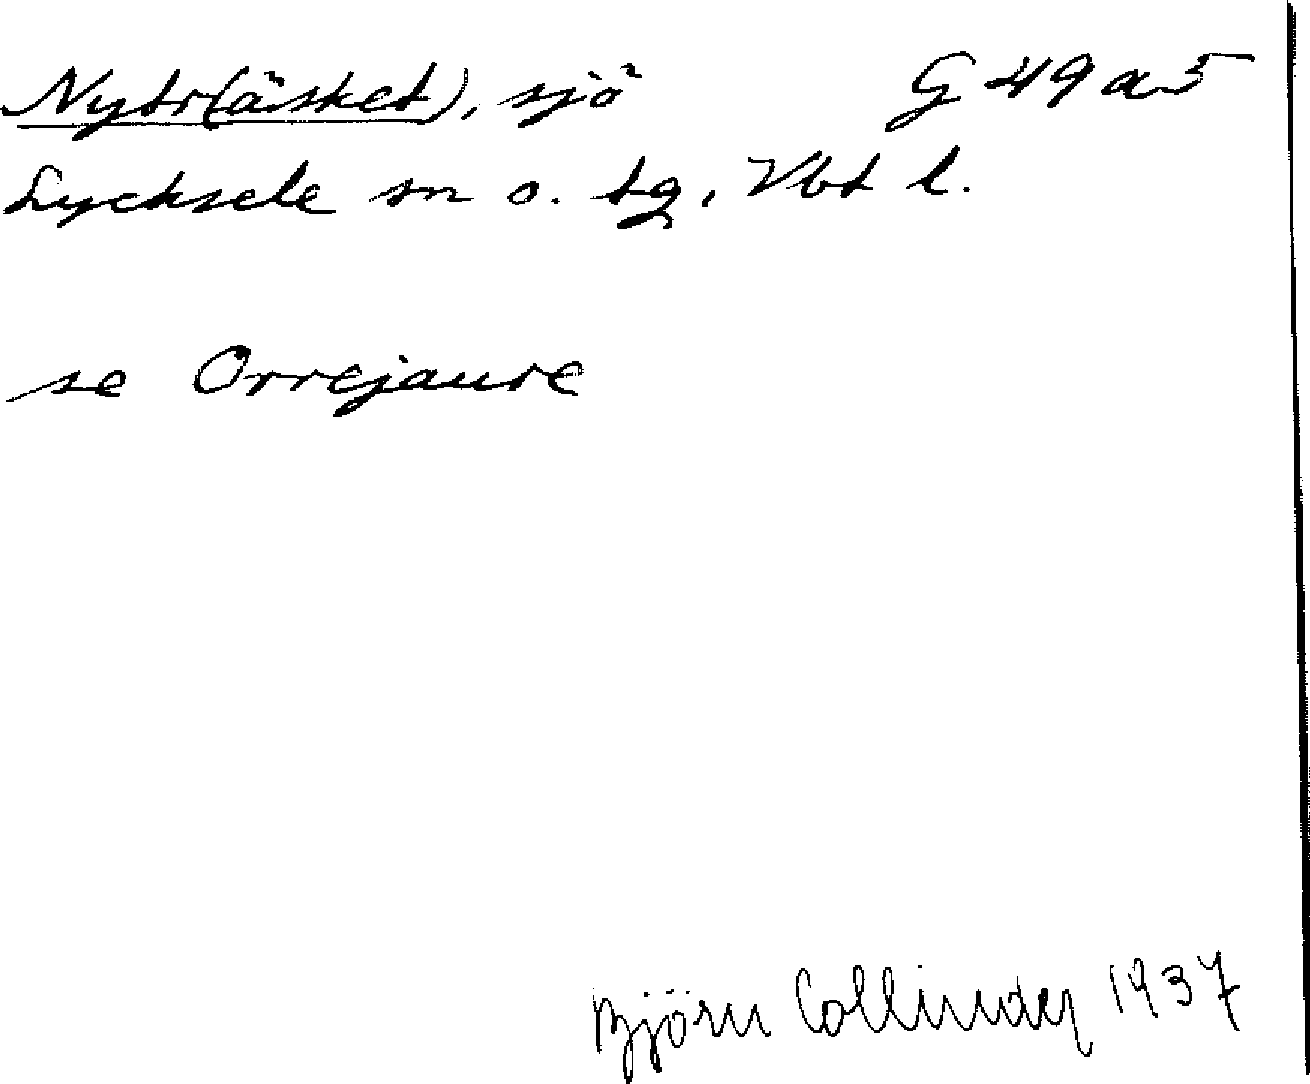 Nytr(äsket), sjö G 49 a 5
Lycksele sn o. tg, Vbt l.
se Orrejaure
Björn Collinder 1937